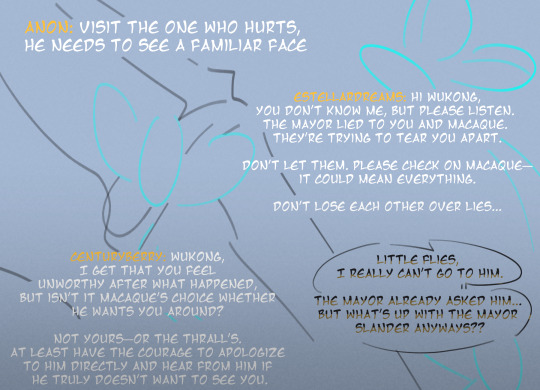 ANON: VISIT THE ONE WHO HURTS,
HE NEEDS TO SEE A FAMILIAR FACE
ESTELLARDREAMS: HI WUKONG,
YOU DON'T KNOW ME, BUT PLEASE LISTEN.
THE MAYOR LIED TO YOU AND MACAQUE.
THEY'RE TRYING TO TEAR YOU APART.
DON'T LET THEM. PLEASE CHECK ON MACAQUE—
IT COULD MEAN EVERYTHING.
DON'T LOSE EACH OTHER OVER LIES...
CENTURYBERRY: WUKONG,
I GET THAT YOU FEEL
UNWORTHY AFTER WHAT HAPPENED,
BUT ISN'T IT MACAQUE'S CHOICE WHETHER
HE WANTS YOU AROUND?
NOT YOURS—OR THE THRALL'S.
AT LEAST HAVE THE COURAGE TO APOLOGIZE
TO HIM DIRECTLY AND HEAR FROM HIM IF
HE TRULY DOESN'T WANT TO SEE YOU.
LITTLE FLIES,
I REALLY CAN'T GO TO HIM.
THE MAYOR ALREADY ASKED HIM...
BUT WHAT'S UP WITH THE MAYOR
SLANDER ANYWAYS??